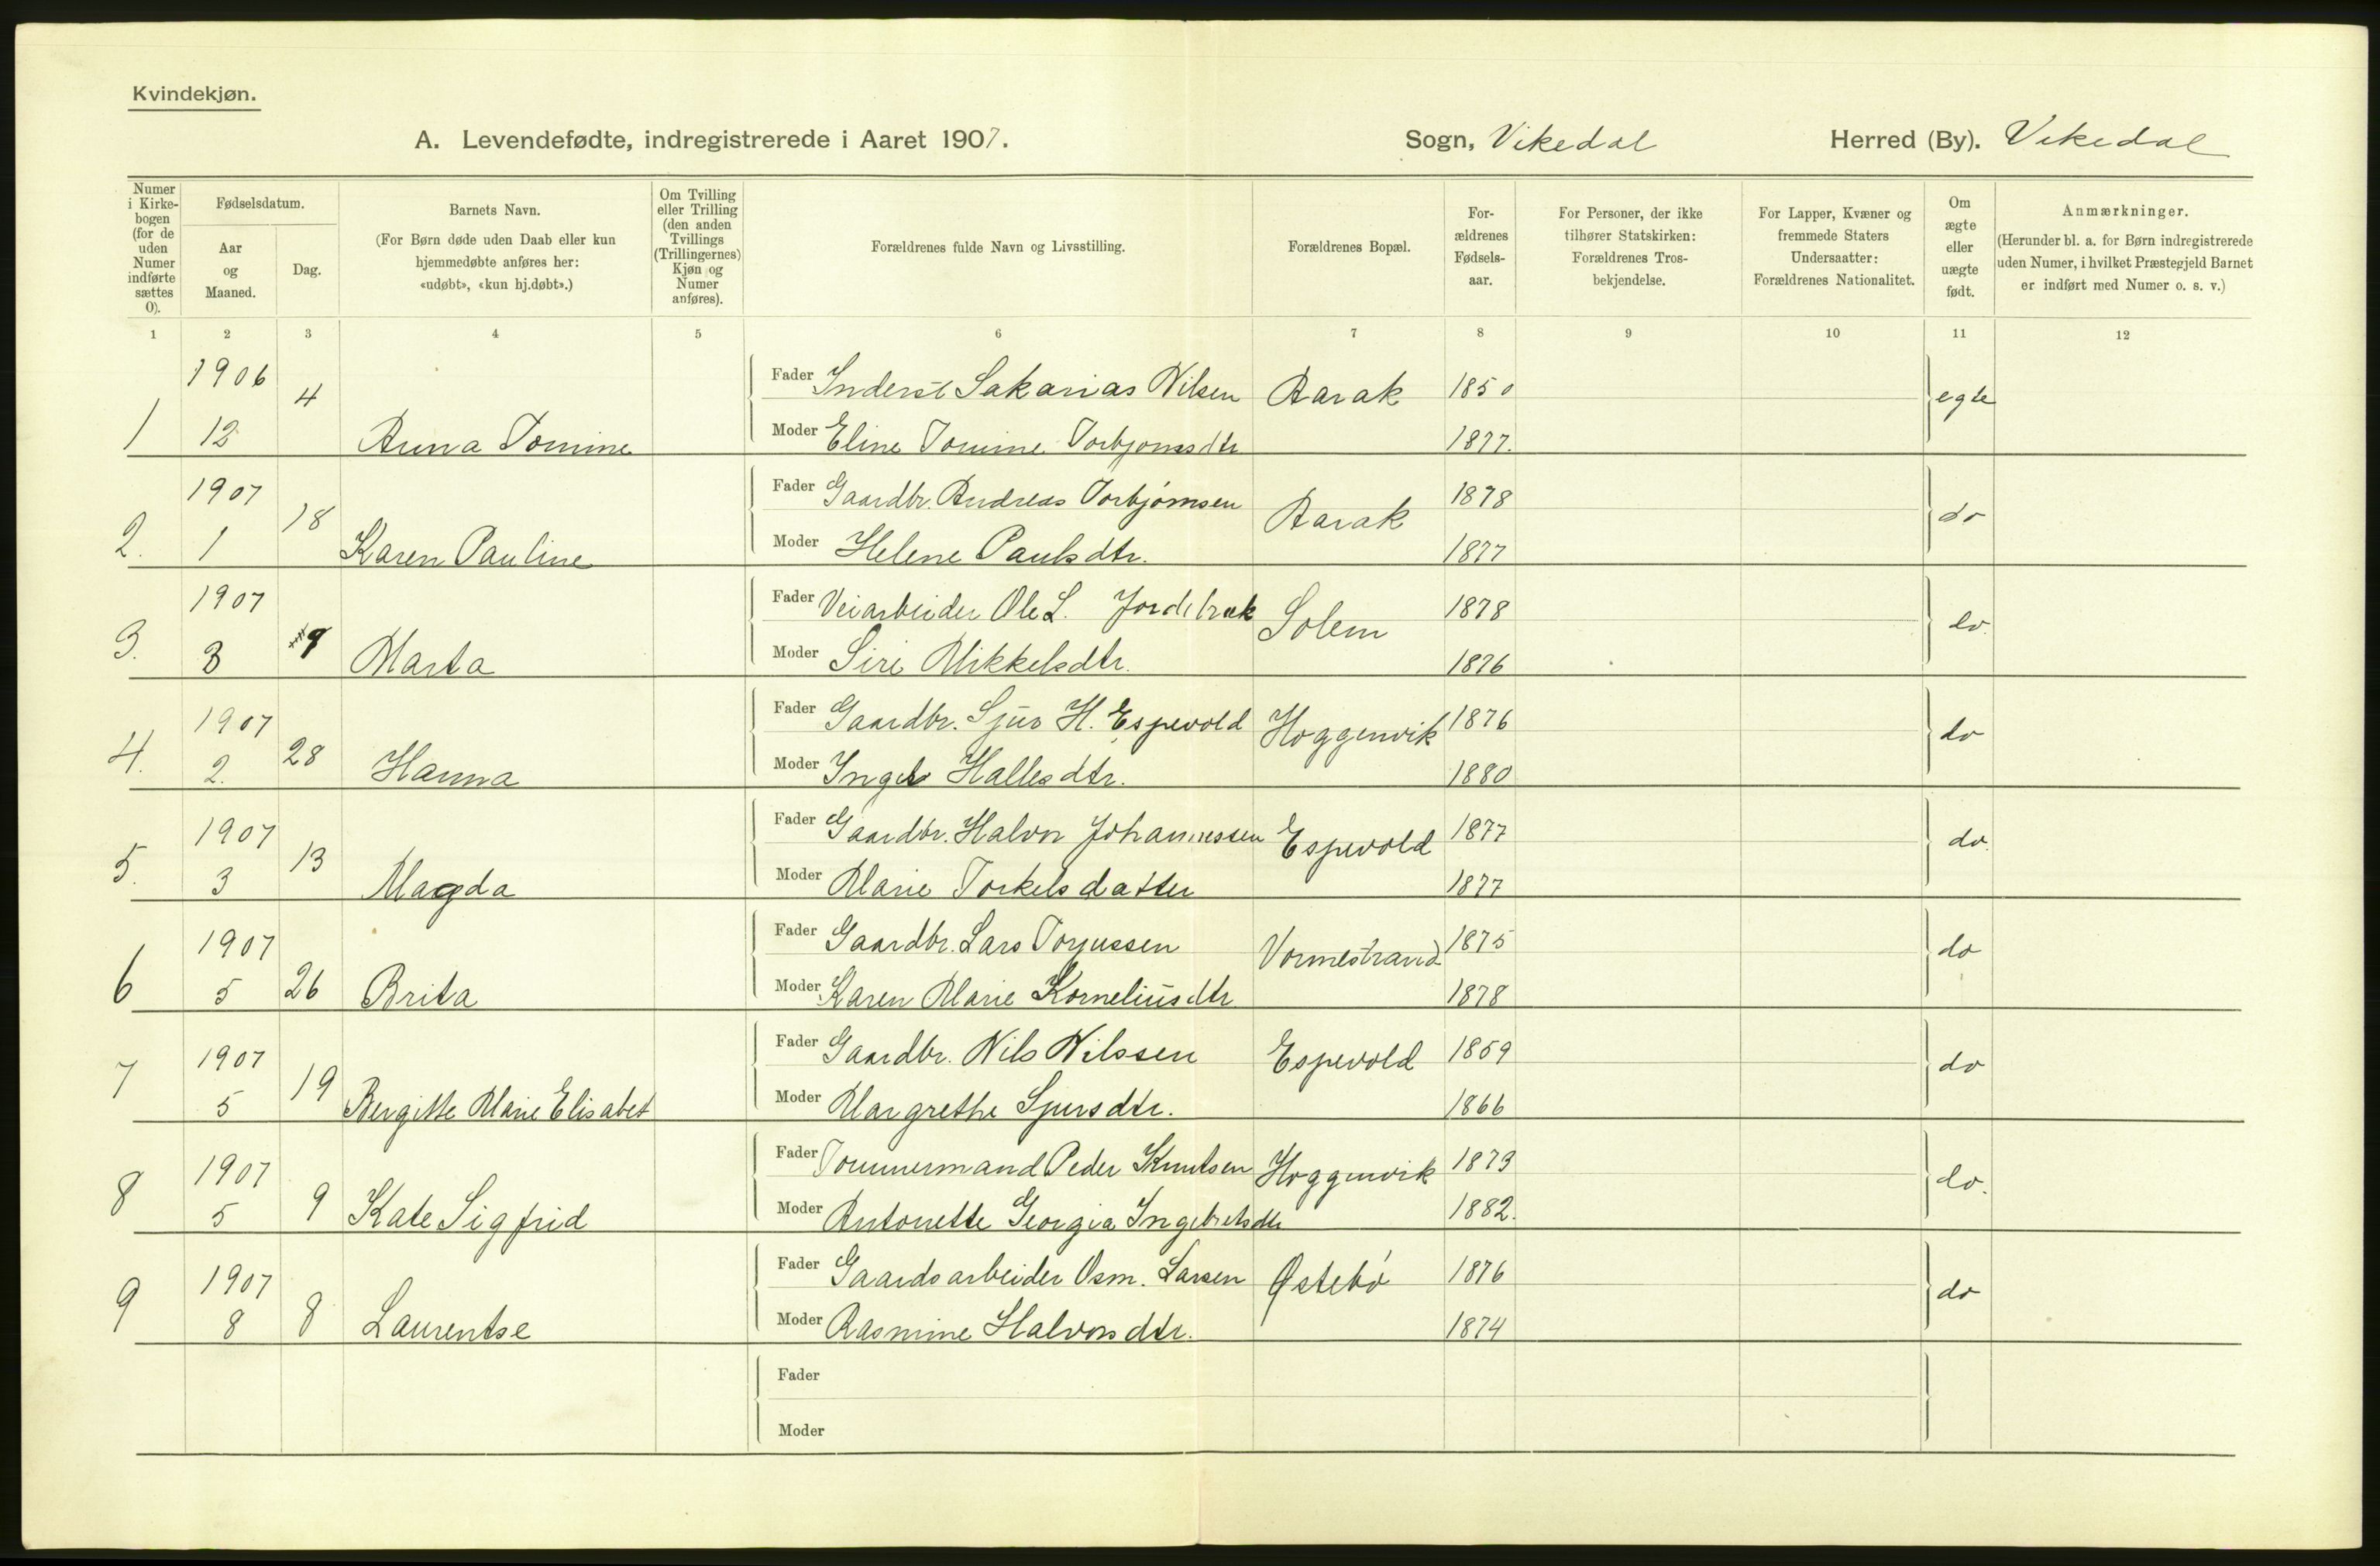 Kvindekjøn.
A. Levendefødte, indregistrerede i Aaret 1907. Sogn, Vikedal Herred (By). Vikedal
Numer i Kirkebogen (for de uden Numer indførte sættes 0).
Fødselsdatum.
Aar og Maaned.
Dag.
Barnets Navn.
(For Børn døde uden Daab eller kun hjemmedøbte anføres her: «udøbt», «kun hj.døbt».)
Om Tvilling eller Trilling (den anden Tvillings (Trillingernes) Kjøn og Numer anføres).
Forældrenes fulde Navn og Livsstilling.
Forældrenes Bopæl.
Forældrenes Fødselsaar.
For Personer, der ikke tilhører Statskirken: Forældrenes Trosbekjendelse.
For Lapper, Kvæner og fremmede Staters Undersaatter: Forældrenes Nationalitet.
Om ægte eller uægte født.
Anmærkninger.
(Herunder bl. a. for Børn indregistrerede uden Numer, i hvilket Præstegjeld Barnet er indført med Numer o. s. v.)
1 2 3 4 5 6 7 8 9 10 11 12
1906 4 Fader Inderst Sakarias Nilsen Aarak 1850 egte
1 12 Anna Tomine Moder Eline Tomine Torbjornsdtr 1877.
1907 18 Fader Gaardbr. Andreas Torbjørnsen Aarak 1878 do
2. 1 Karen Pauline Moder Helene Paulsdtr. 1877
1907 Fader Veiarbeider Ole L. Jordebrek Solem 1878 do.
3. 3 9 Marta Moder Siri Mikkelsdtr. 1876
1907 28 Fader Gaardbr. Sjur H. Espevold Hoggenvik 1876 do
4. 2. Hanna Moder Hallesdtr. 1880
1907 13 Fader Gaardbr. Halvor Johannessen Espevold 1877 do.
5. 3 Magda Moder Marie Torkelsdatter 1877
1907 Fader Gaardbr. Lars Torjussen Vormestrand 1875 do
6 5 26 Brita Moder Karen Marie Korneliusdtr 1878
1907 19 Fader Gaardbr. Nils Nilssen Espevold 1859 do
7 5 Bergitte Marie Elisabet Moder Margrethe Sjursdtr. 1866
1907 Fader Tommermand Peder Knutsen Hoggenvik 1873 do.
8 5 9 Kate Sigfrid Moder Antonette Georgia Ingebretsdtr 1882.
1907 Fader Gaardsarbeider Osm. Larsen Østebø 1876 do
9 8 8 Laurentse Moder Rasmine Halvorsdtr. 1874
Fader
Moder